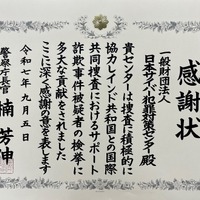 感謝状
一般財団法人
日本サイバー犯罪対策センター殿
貴センターは捜査に積極的に
協力しインド共和国との国際
共同捜査におけるサポート
詐欺事件被疑者の検挙に
多大な貢献をされました
ここに深く感謝の意を表します
令和七年九月五日
警察庁長官
楠芳伸